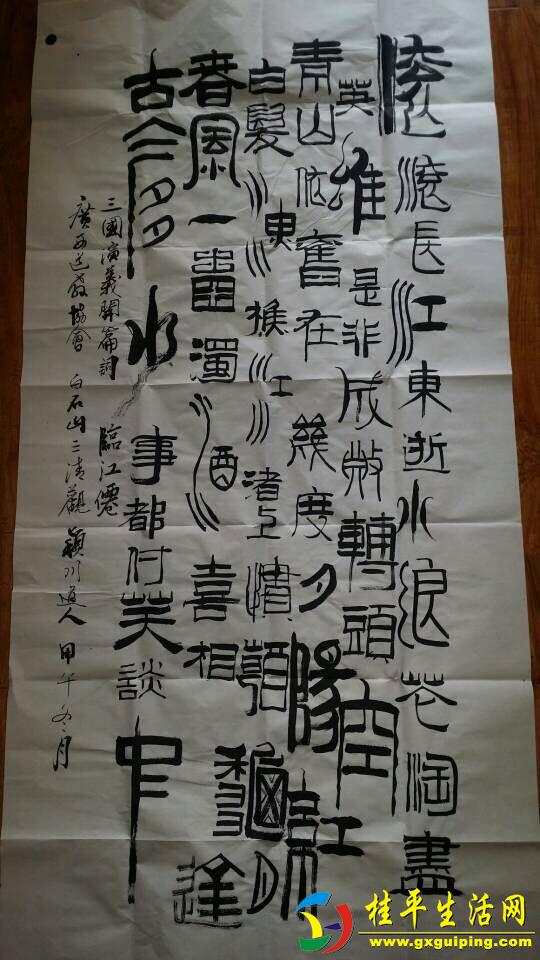 滾滾長江東逝水浪花淘盡
英雄是非成敗轉頭空
青山依舊在幾度夕陽紅
白髮漁樵江渚上慣龝月
春風一壺濁酒喜相逢
古今多少事都付笑談中
三國演義開篇詞 臨江僊
廣西道教協會 白石山三清觀 潁川道人 甲午冬月
桂平生活网
www.gxguiping.com